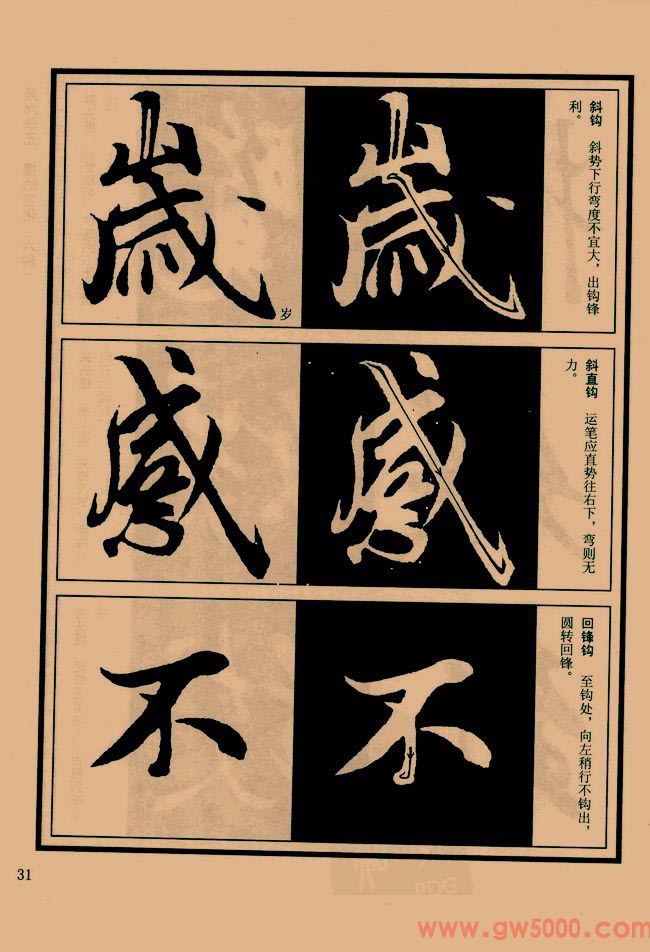 歲
歲
斜钩 斜势下行弯度不宜大，出钩锋
利。
岁
感
感
斜直钩 运笔应直势往右下，弯则无
力。
不
不
回锋钩 至钩处，向左稍行不钩出，
圆转回锋。
31
PDG
www.gw5000.com